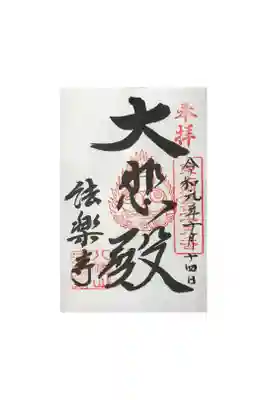 奉拝
令和元年十月十四日
大悲殿
法楽寺